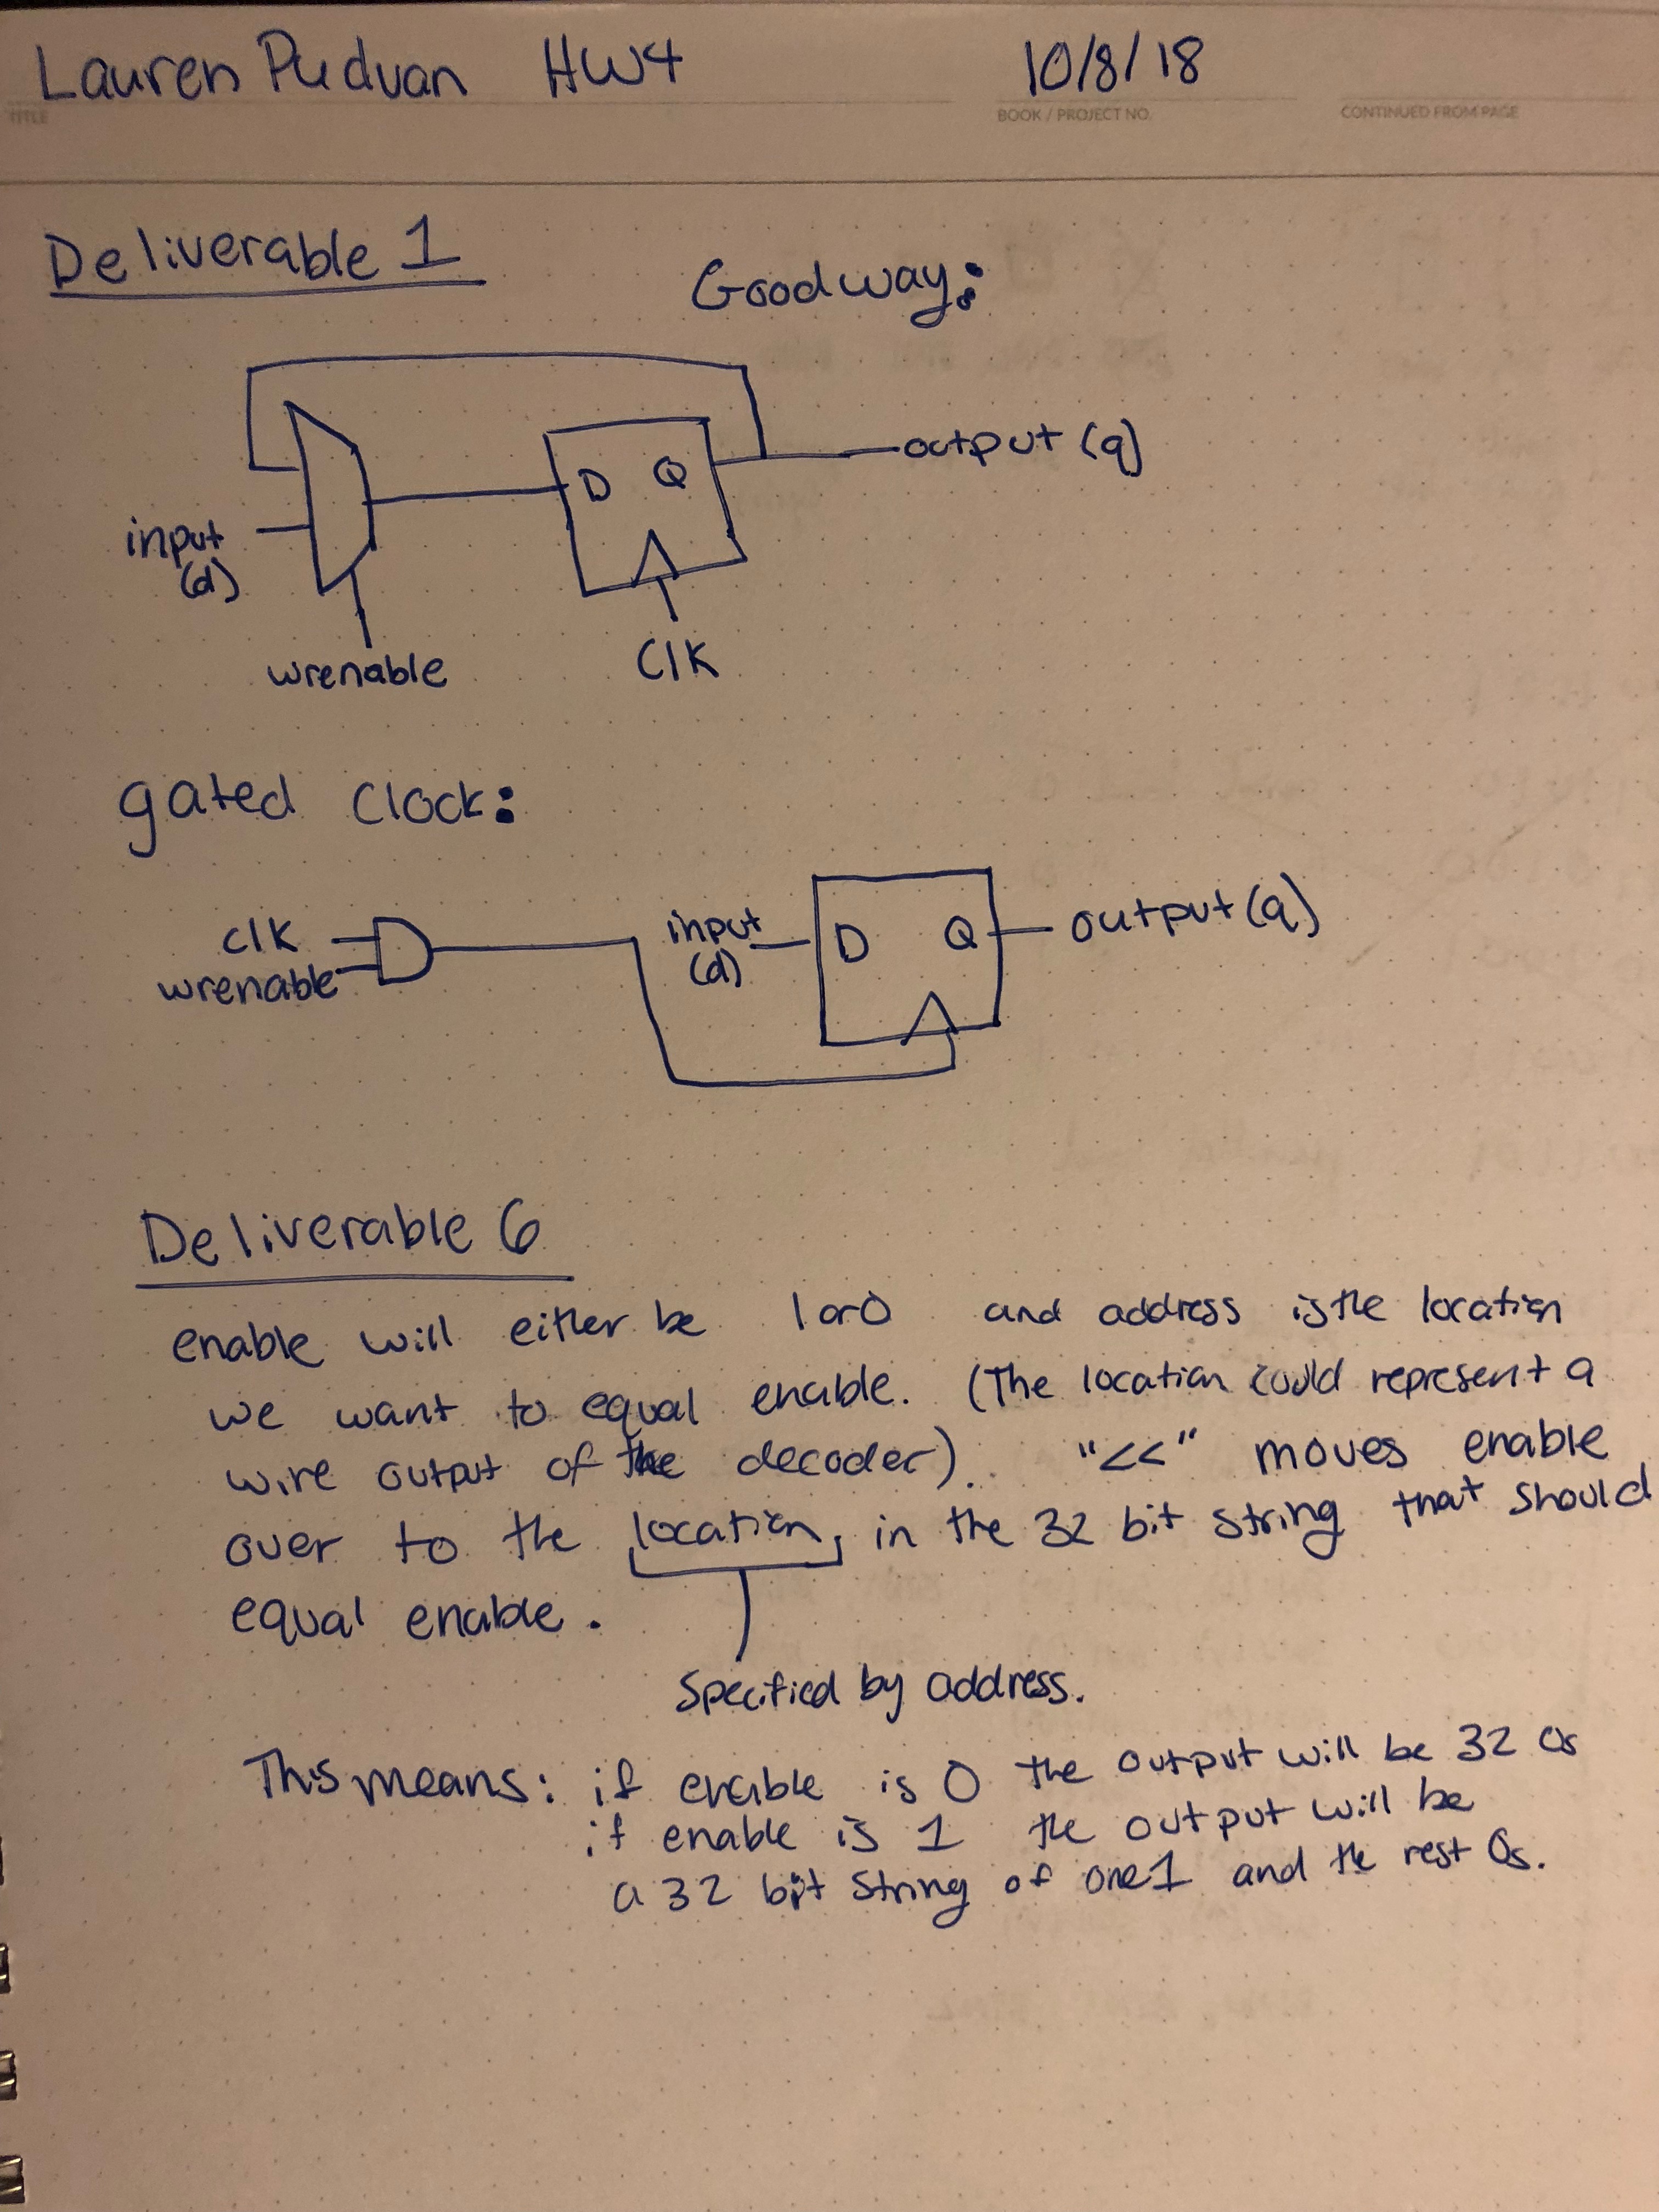 Lauren Pudvan HW4 10/8/18
TITLE BOOK / PROJECT NO. CONTINUED FROM PAGE
Deliverable 1
Good way:
D Q output (q)
input
(d)
wrenable Clk
gated clock:
clk input D Q output (q)
wrenable (d)
Deliverable 6
enable will either be 1 or 0 and address is the location
we want to equal enable. (The location could represent a
wire output of the decoder). "<<" moves enable
over to the location, in the 32 bit string that should
equal enable.
Specified by address.
This means: if enable is 0 the output will be 32 0s
if enable is 1 the output will be
a 32 bit string of one 1 and the rest 0s.